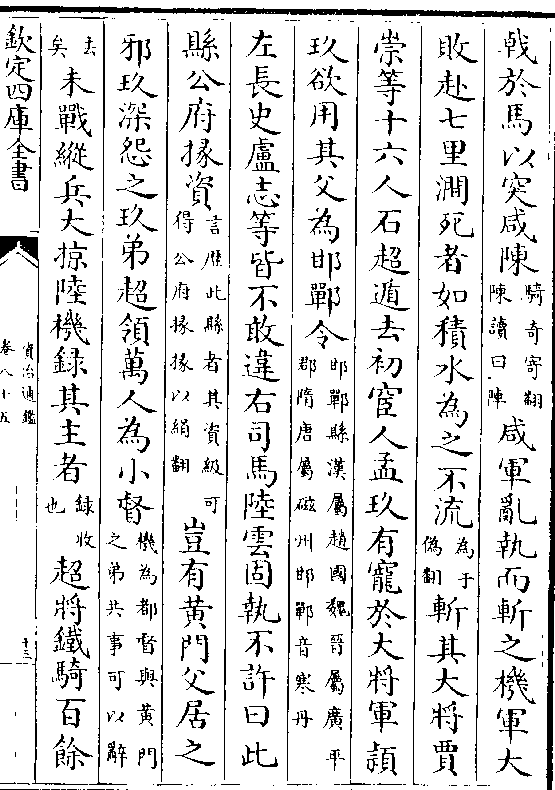 戟於馬以突咸陳騎奇寄翻陳讀曰陣咸軍亂執而斬之機軍大
敗赴七里澗死者如積水為之不流為于偽翻斬其大將賈
崇等十六人石超遁去初宦人孟玖有寵於大將軍頴
玖欲用其父為邯鄲令邯鄲縣漢屬趙國魏晉屬廣平郡隋唐屬磁州邯鄲音寒丹
左長史盧志等皆不敢違右司馬陸雲固執不許曰此
縣公府掾資言歷此縣者其資級可得公府掾掾以絹翻豈有黄門父居之
邪玖深怨之玖弟超領萬人為小督機為都督與黄門之弟共事可以辭
去矣未戰縱兵大掠陸機録其主者録收也超將鐵騎百餘
欽定四庫全書
資治通鑑
卷八十五
十三